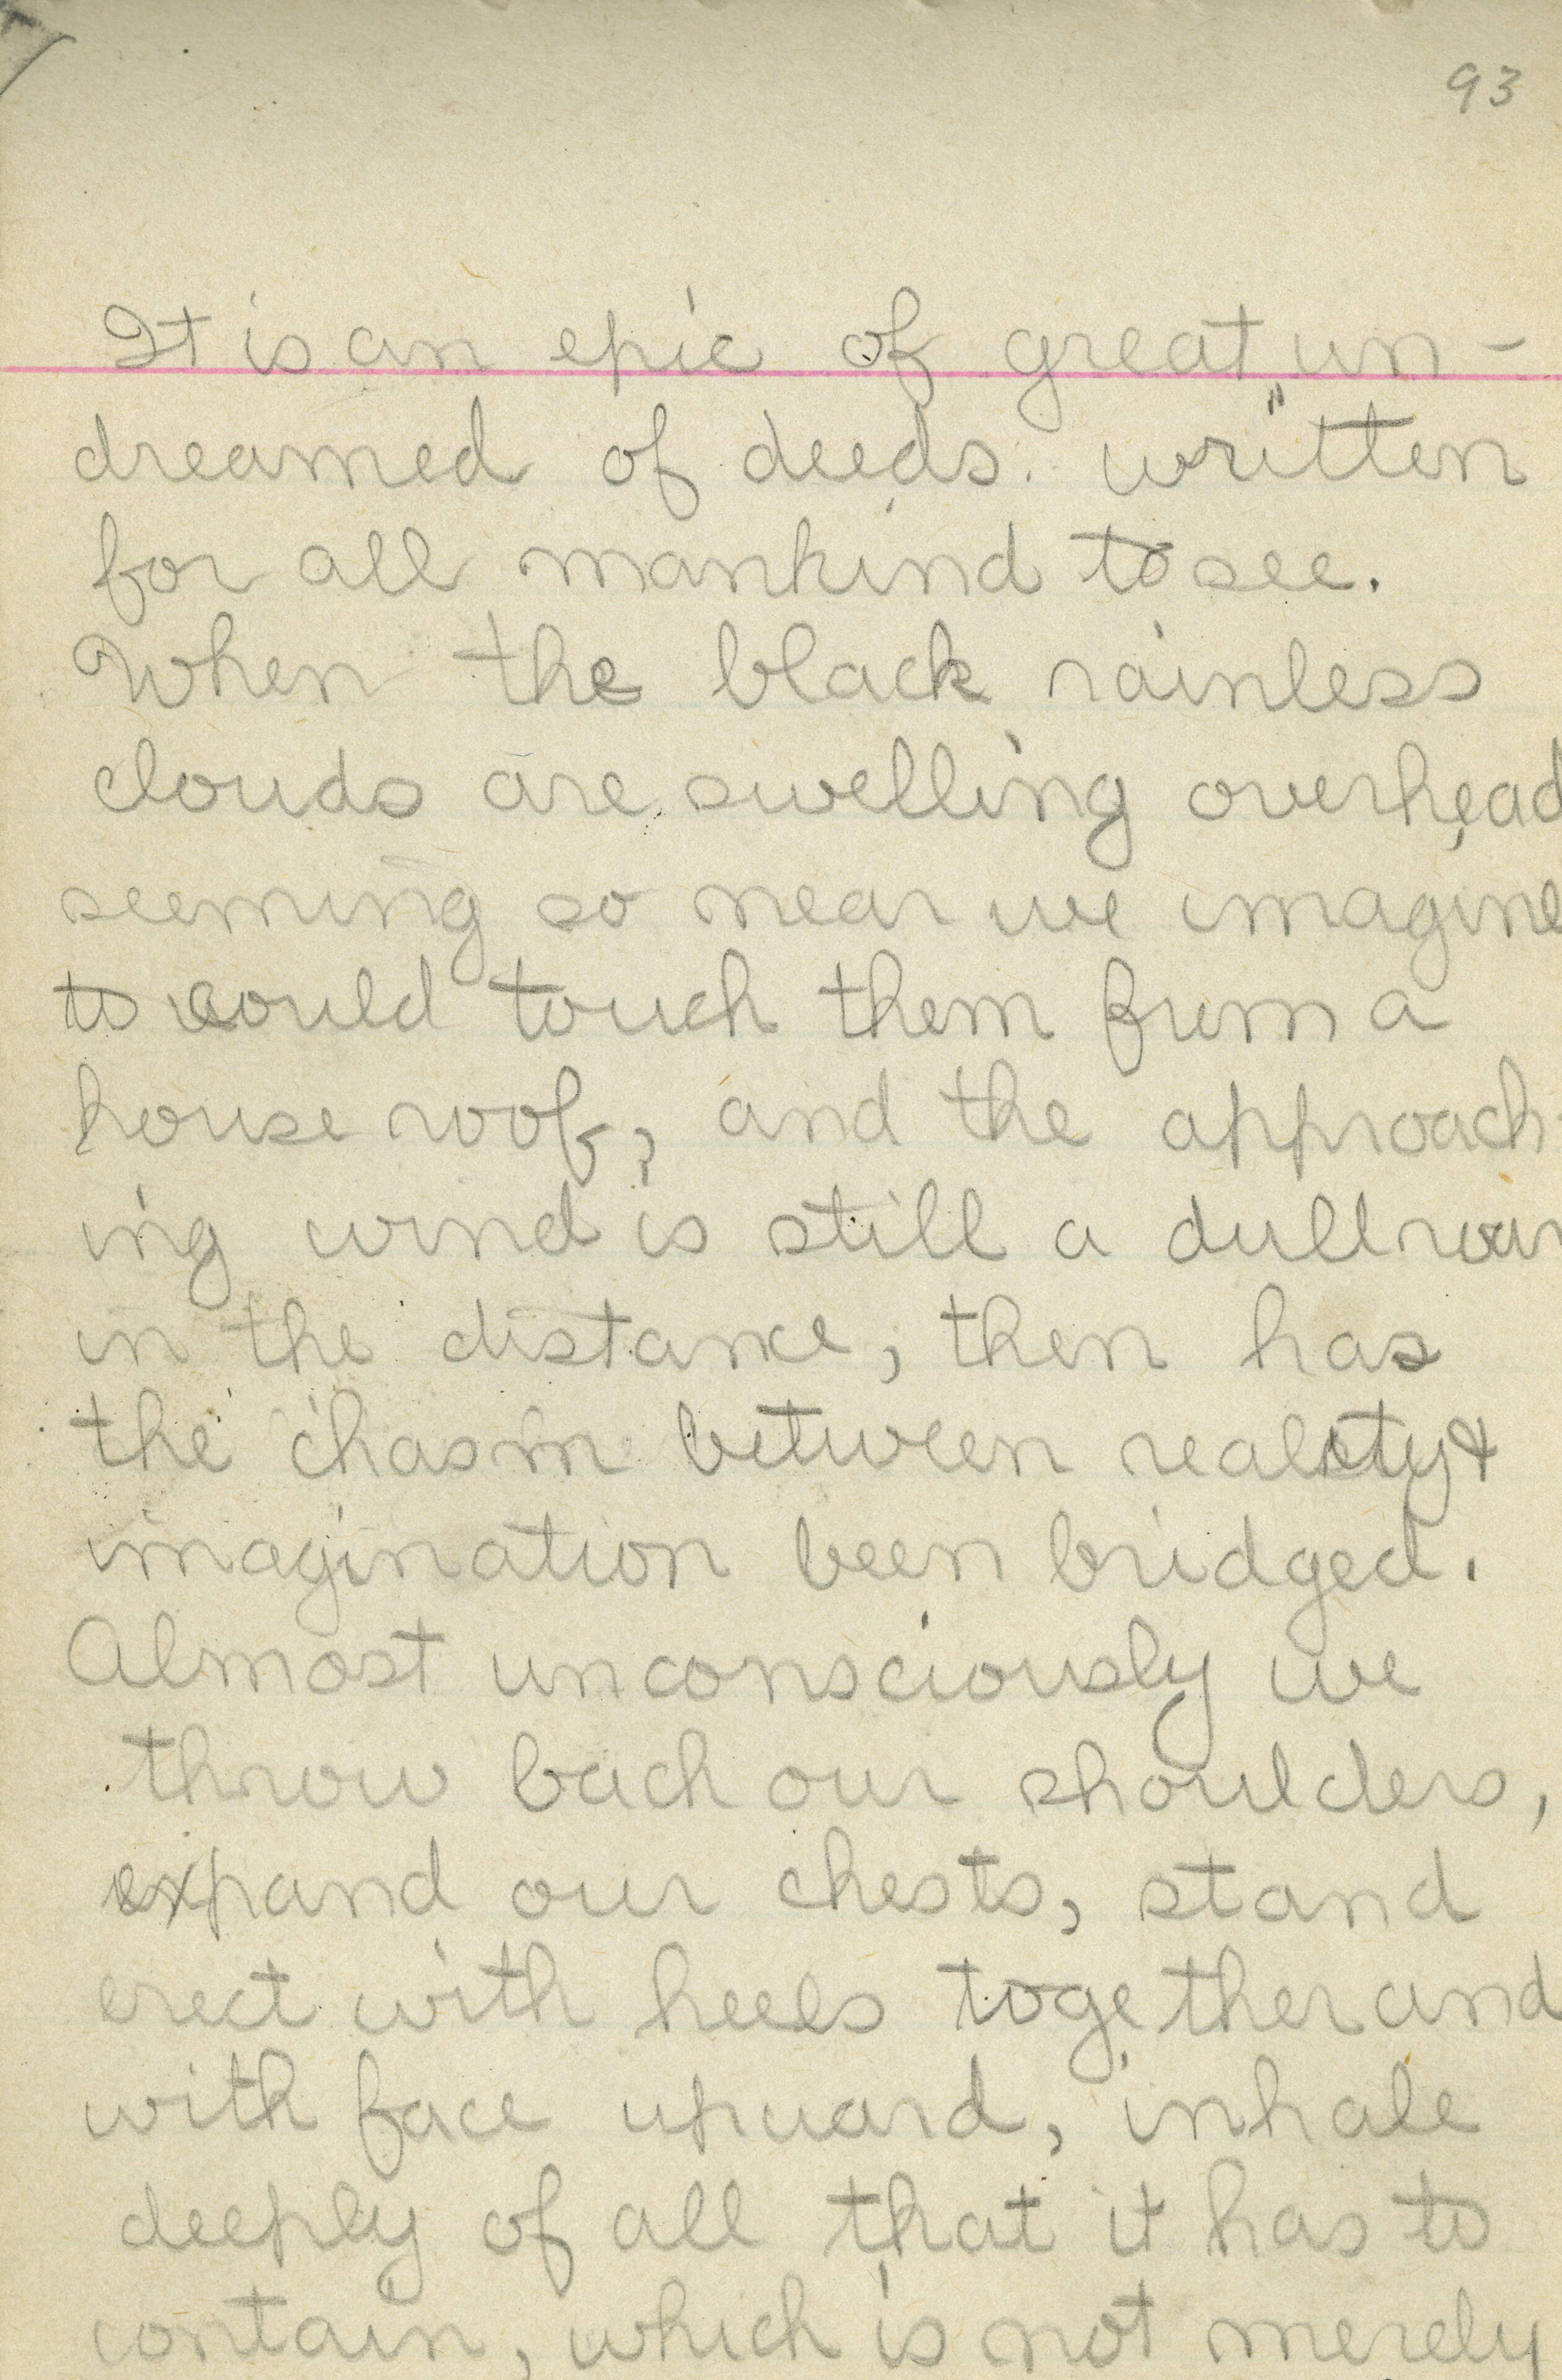 93
It is an epic of great un-
dreamed of deeds. written
for all mankind to see.
When the black rainless
clouds are swelling overhead
seeming so near we imagine
to could touch them frum a
house roof, and the approach-
ing wind is still a dull roar
in the distance, then has
the chasm between reality &
imagination been bridged.
Almost unconsciously we
throw back our shoulders,
expand our chests, stand
erect with heels together and
with face upward, inhale
deeply of all that it has to
contain, which is not merely